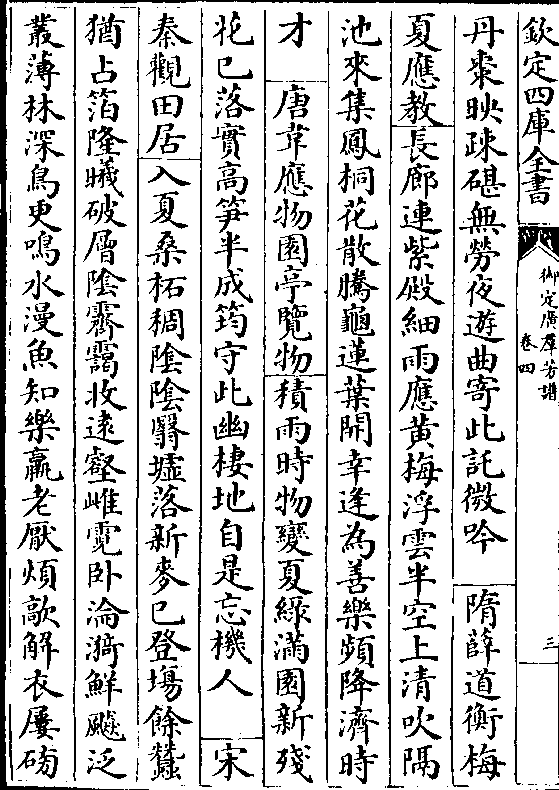 欽定四庫全書
御定廣羣芳譜
卷四
三
丹棗映疎碪無勞夜遊曲寄此託微吟 隋薛道衡梅
夏應教 長廊連紫殿細雨應黄梅浮雲半空上清吹隔
池來集鳳桐花散騰龜蓮葉開幸逢為善樂頻降濟時
才 唐韋應物園亭覽物 積雨時物變夏綠滿園新殘
花已落實高笋半成筠守此幽棲地自是忘機人 宋
秦觀田居 入夏桑柘稠陰陰翳墟落新麥已登塲餘蠶
猶占箔隆曦破層陰霽靄收遠壑雌霓卧淪漪鮮飈泛
叢薄林深鳥更鳴水漫魚知樂羸老厭煩歊解衣屢磅